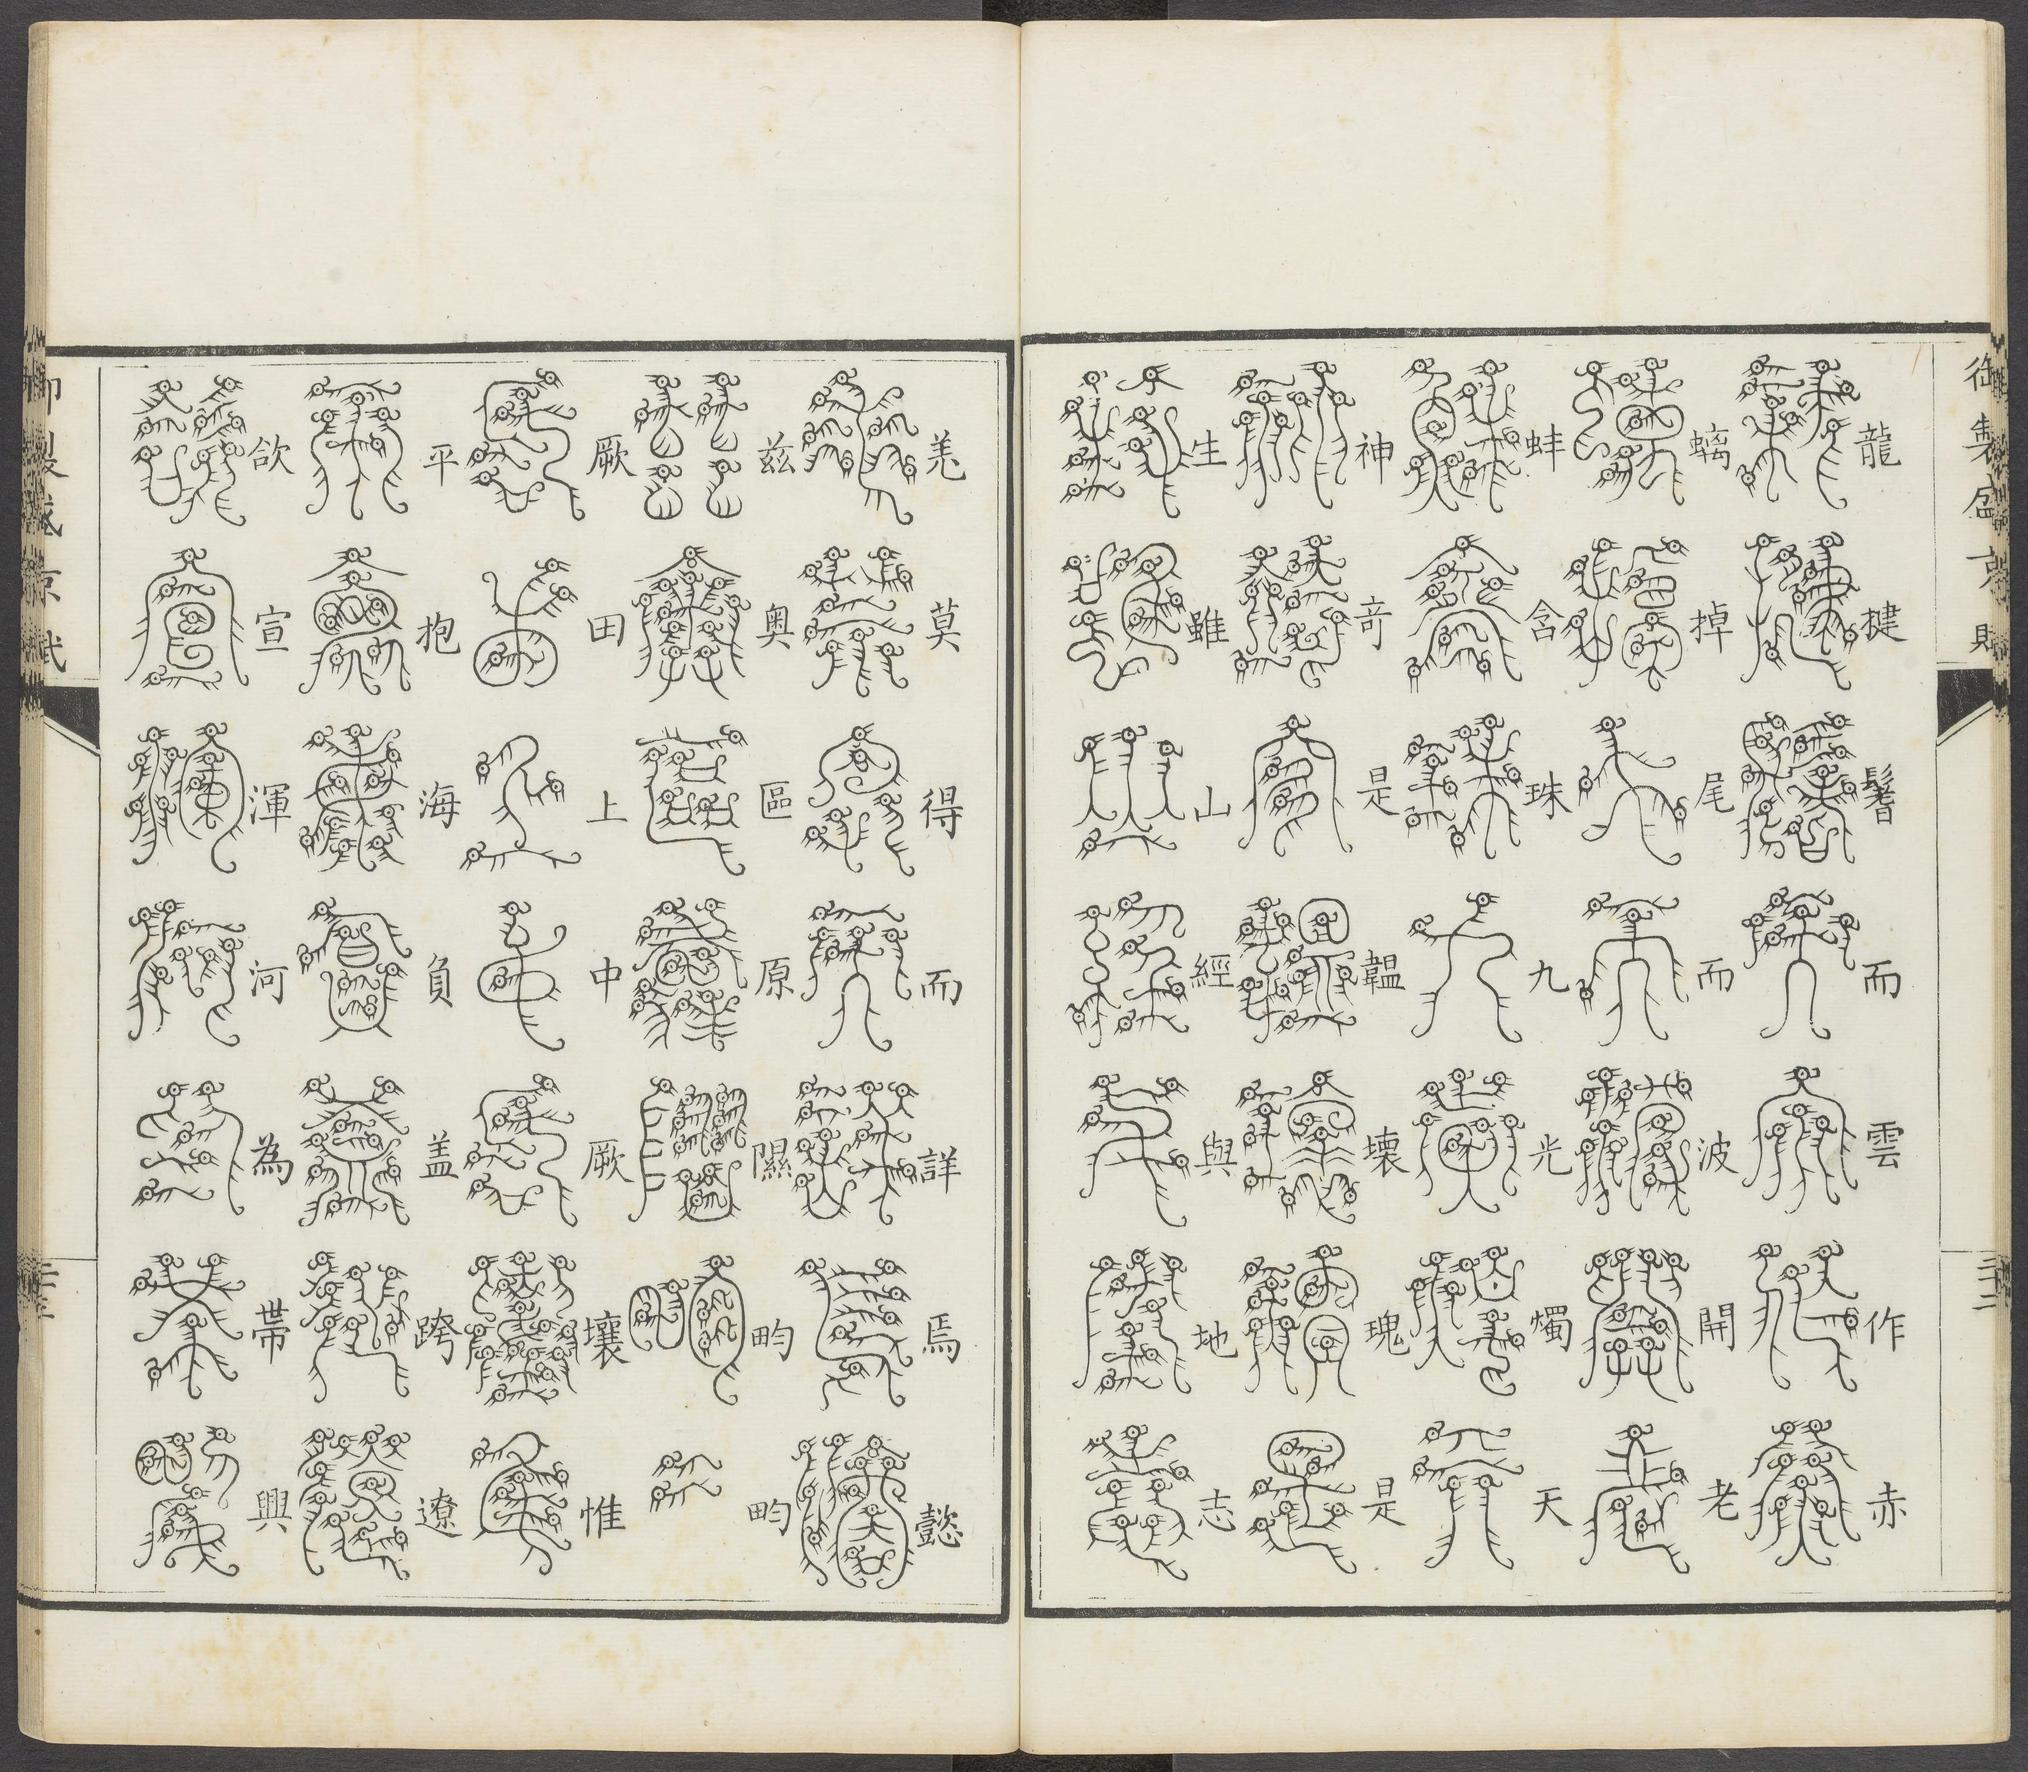 御製盛京賦
龍揵鬐而雲作赤
螭掉尾而波開老
蚌含珠九光燭天
神奇是韞壞瑰是
生雖山經與地志
羌莫得而詳焉懿
茲奧區原隰畇畇
厥田上中厥壤惟
平抱海負蓋跨遼
欱宣渾河為帶興
御製盛京賦